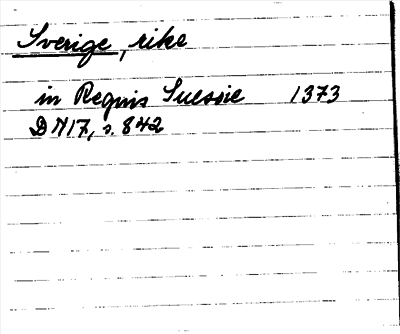 Sverige, rike
in Regnis Suessie 1373
DN17, s. 842